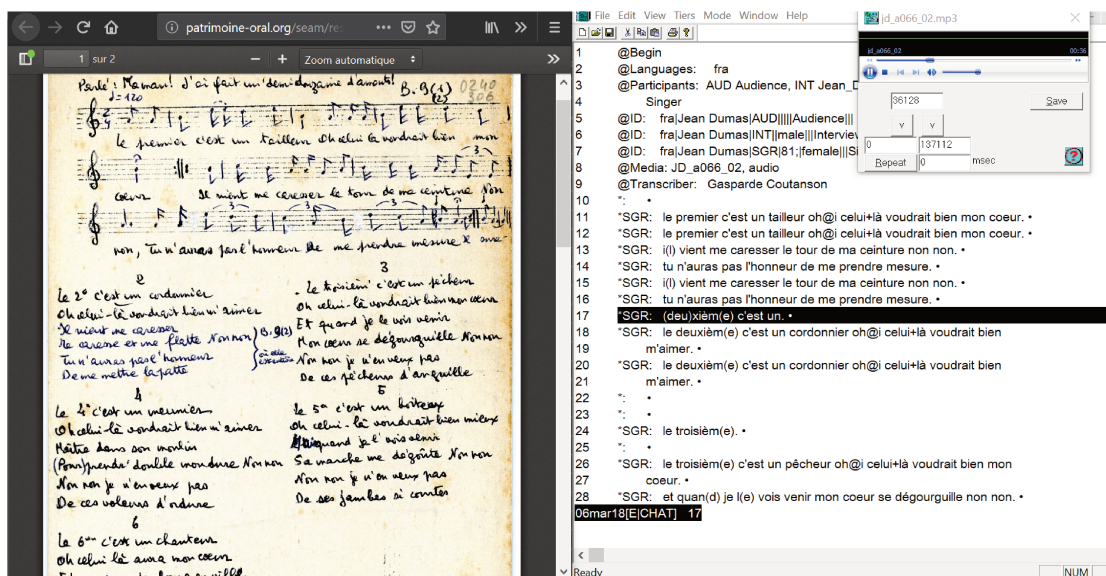 patrimoine-oral.org/seam/re
1 sur 2
Zoom automatique
Parlé : Maman ! J'ai fait un' demi-douzaine d'amants !
♩=120
B. 9(1)
(2)
0240
306
le premier c'est un tailleur Oh celui là voudrait bien mon
cœur Il vient me caresser le tour de ma ceinture Non
non, Tu n'auras pas l'honneur De me prendre mesure
2
Le 2e c'est un cordonnier
Oh celui-là voudrait bien m'aimer
Il vient me caresser
Me caresse et me flatte Non non
Tu n'auras pas l'honneur
De me mettre la patte
B. 9(2)
3
Le troisièm' c'est un pêcheur
Oh celui-là voudrait bien mon cœur
Et quand je le vois venir
Mon cœur se dégourguille Non non
Non non je n'en veux pas
De ces pêcheurs d'anguille
4
Le 4e c'est un meunier
Oh celui-là voudrait bien m'aimer
Maître dans son moulin
(Pour) prendr' double mouture Non non
Non non je n'en veux pas
De ces voleurs d'ordure
5
Le 5e c'est un boiteux
Oh celui-là voudrait bien mieux
quand je l'vois venir
Sa marche me dégoûte Non non
Non non je n'en veux pas
De ses jambes si courtes
6
Le 6em c'est un chanteur
Oh celui là aura mon cœur
File Edit View Tiers Mode Window Help
1 @Begin
2 @Languages: fra
3 @Participants: AUD Audience, INT Jean_D
4 Singer
5 @ID: fra|Jean Dumas|AUD|||||Audience|||
6 @ID: fra|Jean Dumas|INT||male|||Interview
7 @ID: fra|Jean Dumas|SGR|81;|female|||Si
8 @Media: JD_a066_02, audio
9 @Transcriber: Gasparde Coutanson
10 *: •
11 *SGR: le premier c'est un tailleur oh@i celui+là voudrait bien mon coeur. •
12 *SGR: le premier c'est un tailleur oh@i celui+là voudrait bien mon coeur. •
13 *SGR: i(l) vient me caresser le tour de ma ceinture non non. •
14 *SGR: tu n'auras pas l'honneur de me prendre mesure. •
15 *SGR: i(l) vient me caresser le tour de ma ceinture non non. •
16 *SGR: tu n'auras pas l'honneur de me prendre mesure. •
17 *SGR: (deu)xièm(e) c'est un. •
18 *SGR: le deuxièm(e) c'est un cordonnier oh@i celui+là voudrait bien
19 m'aimer. •
20 *SGR: le deuxièm(e) c'est un cordonnier oh@i celui+là voudrait bien
21 m'aimer. •
22 *: •
23 *: •
24 *SGR: le troisièm(e). •
25 *: •
26 *SGR: le troisièm(e) c'est un pêcheur oh@i celui+là voudrait bien mon
27 coeur. •
28 *SGR: et quan(d) je l(e) vois venir mon coeur se dégourguille non non. •
06mar18[E|CHAT] 17
Ready
NUM
jd_a066_02.mp3
jd_a066_02
00:36
36128
Save
v v
0
137112
Repeat
0
msec